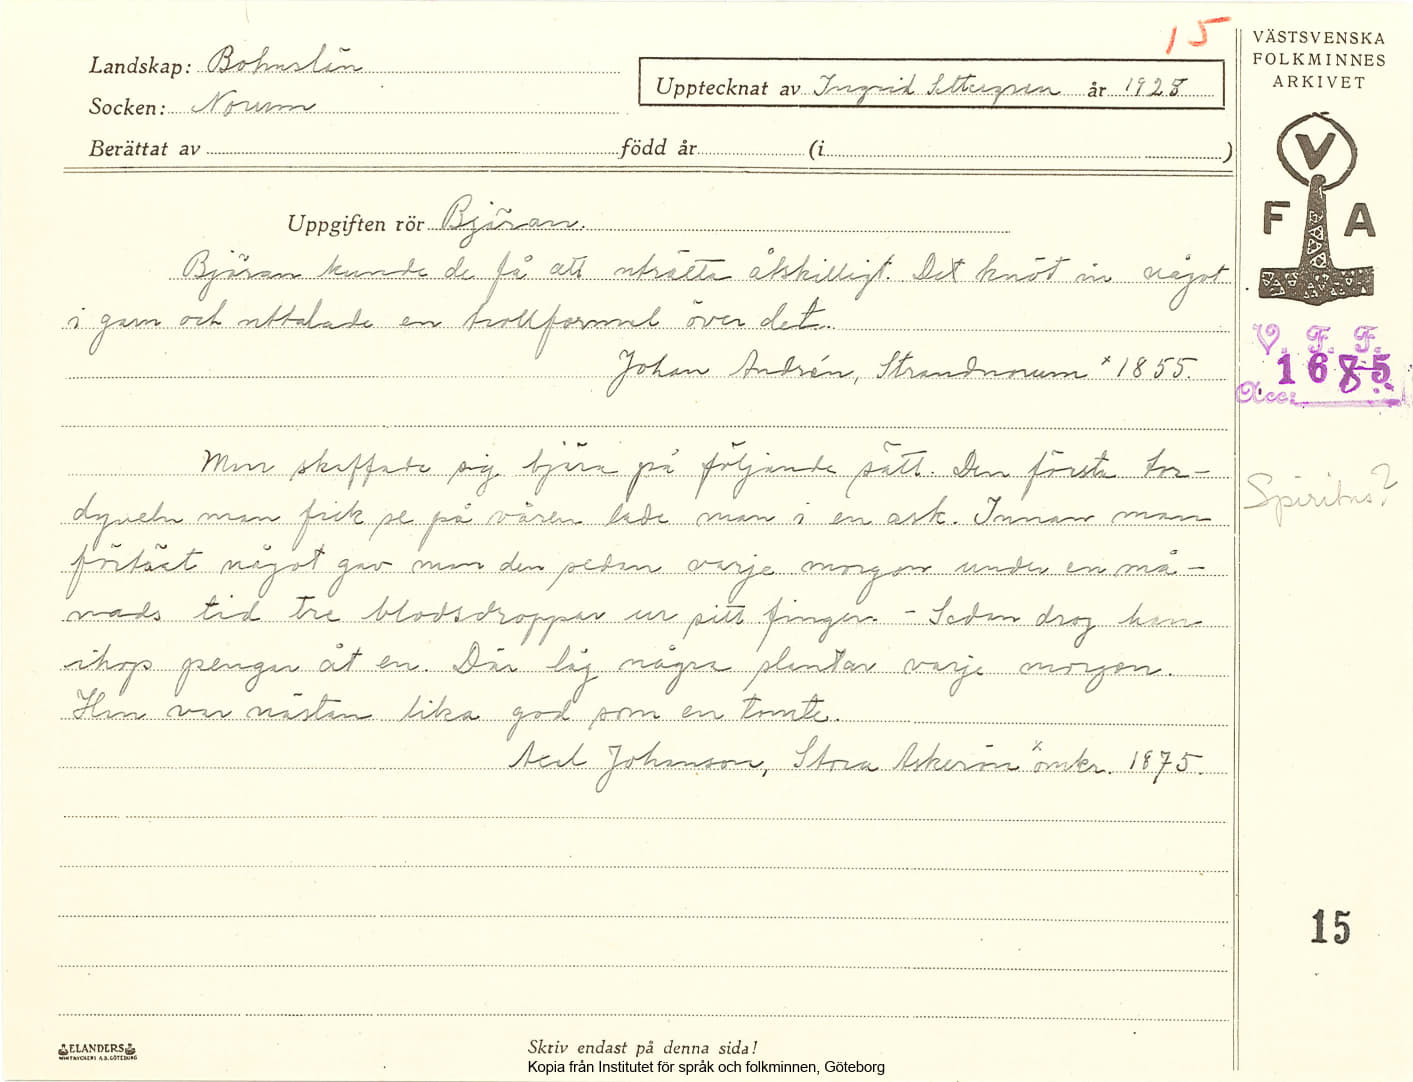 15
Landskap: Bohuslän
Socken: Norum
Upptecknat av Ingrid Settergren år 1925
Berättat av född år (i )
Uppgiften rör Bjäran.
Bjäran kunde de få att uträtta åtskilligt. Det knöt in något
i garn och uttalade en trollformel över det.
Johan Andrén, Strandnorum * 1855.
Man skaffade sig bjära på följande sätt. Den första tor-
dyveln man fick se på våren lade man i en ask. Innan man
förtärt något gav man den sedan varje morgon under en må-
nads tid tre blodsdroppar ur sitt finger. - Sedan drog han
ihop pengar åt en. Där låg några slantar varje morgon.
Han var nästan lika god som en tomte.
Axel Johanson, Stora Askerön * omkr. 1875.
VÄSTSVENSKA
FOLKMINNES
ARKIVET
V
F A
V. F. F.
1685
Acc:
Spiritus?
15
ELANDERS
Skriv endast på denna sida!
Kopia från Institutet för språk och folkminnen, Göteborg